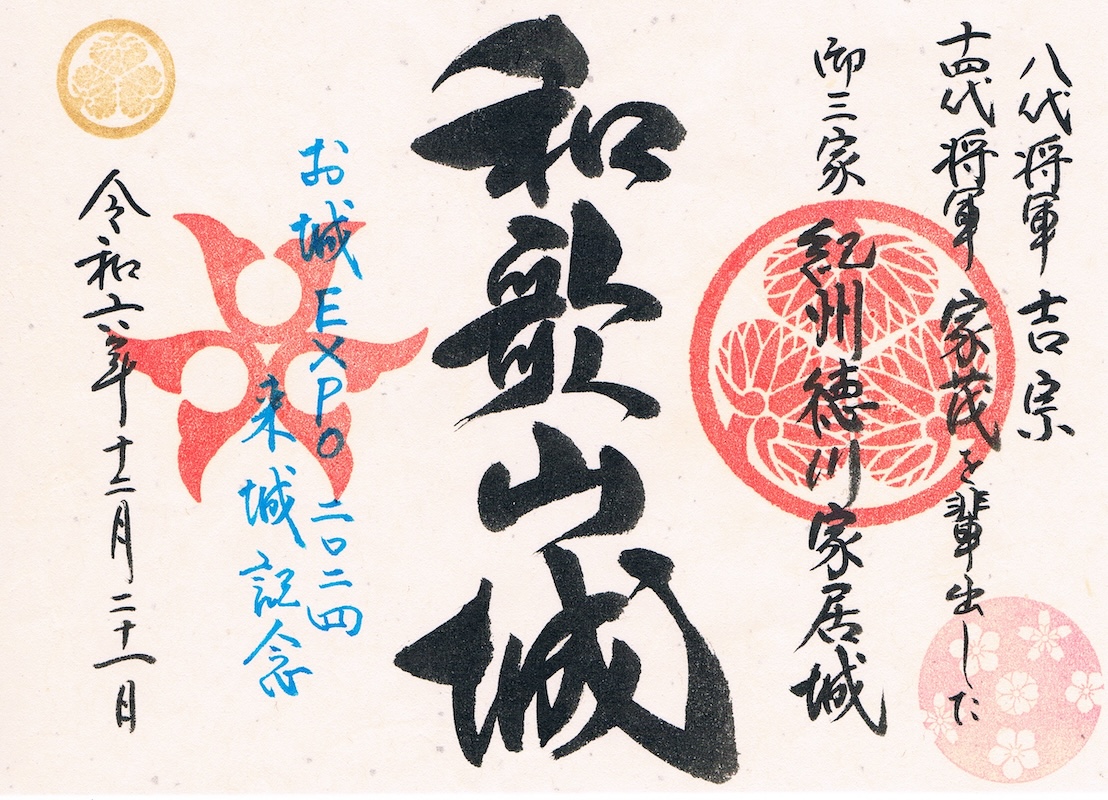 八代将軍 吉宗
十四代将軍 家茂を輩出した
御三家 紀州徳川家居城
和歌山城
お城EXPO 二〇二四
来城記念
令和六年十二月二十一日